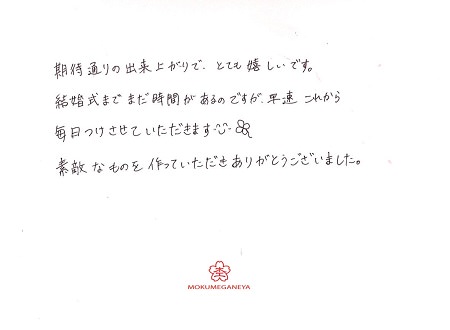 期待通りの出来上がりで、とても嬉しいです。
結婚式までまだ時間があるのですが、早速これから
毎日つけさせていただきます
素敵なものを作っていただきありがとうございました。
MOKUMEGANEYA